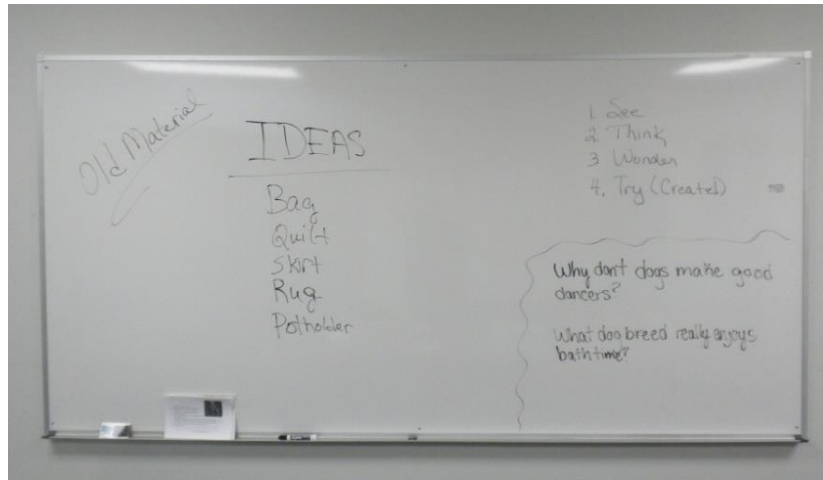 Old Material
IDEAS
Bag
Quilt
Skirt
Rug
Potholder
1. See
2. Think
3 Wonder
4. Try (Created)
Why don't dogs make good
dancers?
What dog breed really enjoys
bath time?